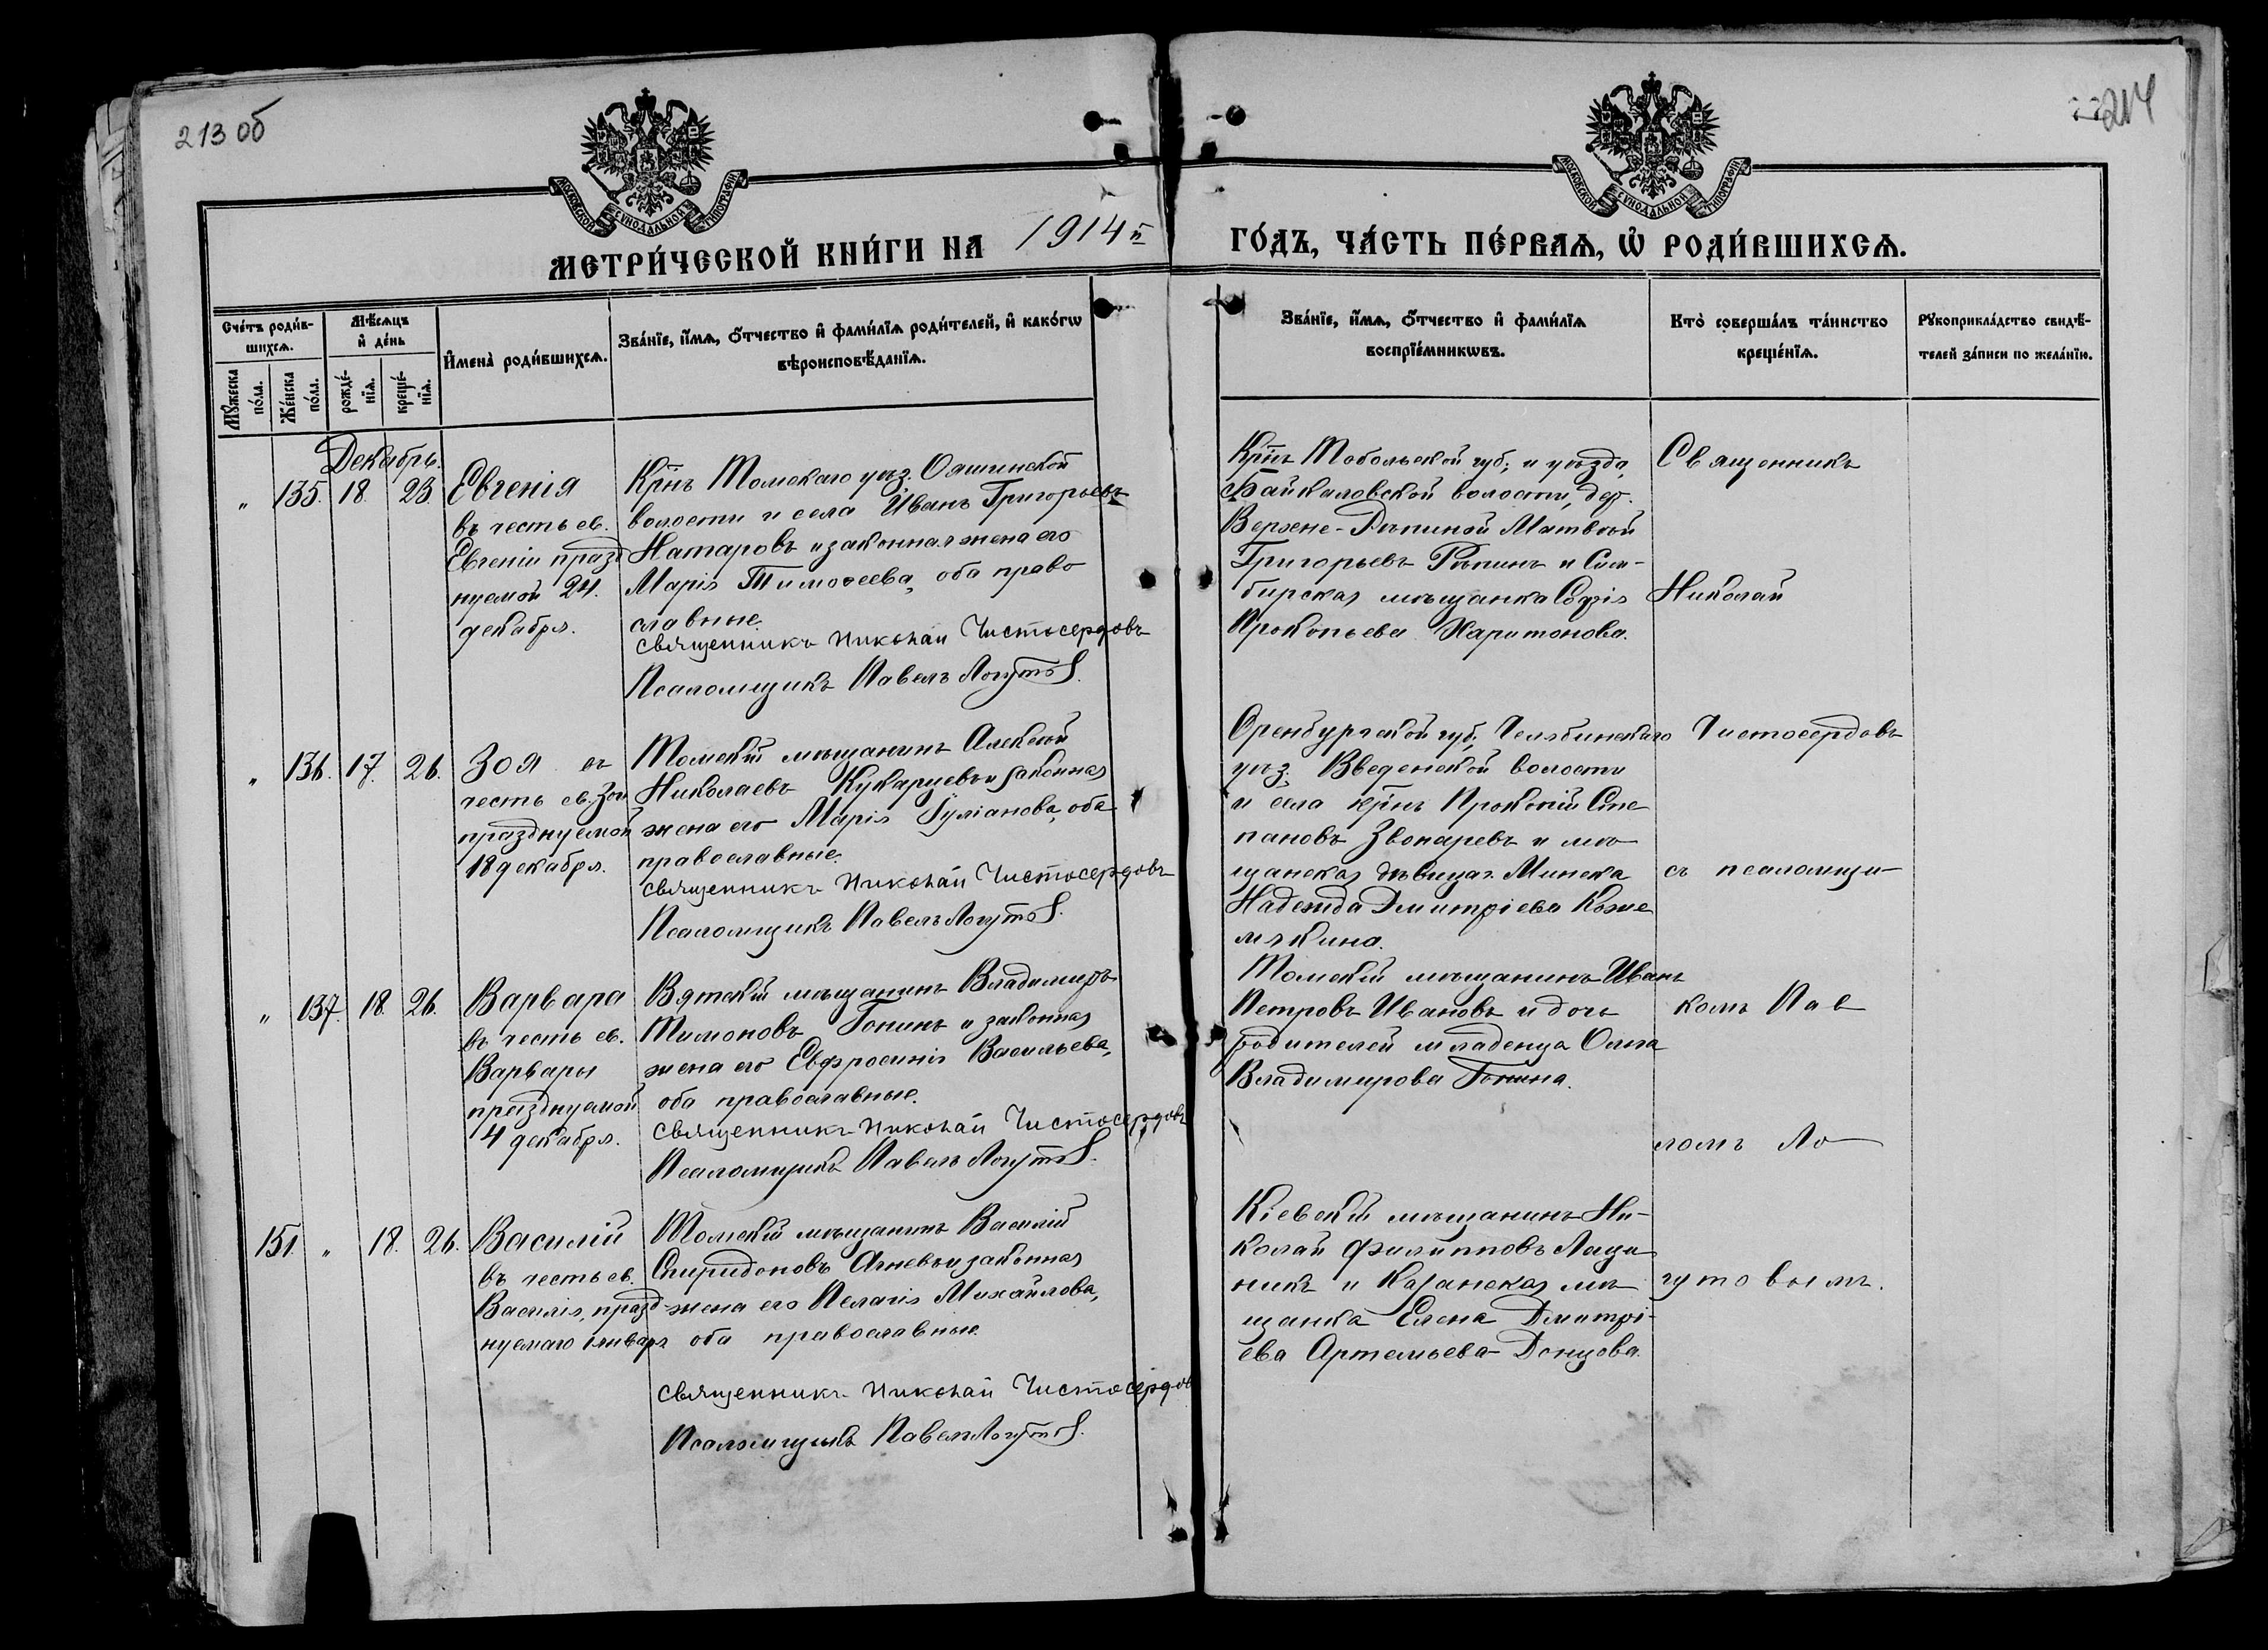 213 об
214
МОСКОВСКОЙ СѴНОДАЛЬНОЙ ТИПОГРАФІИ
МОСКОВСКОЙ СѴНОДАЛЬНОЙ ТИПОГРАФІИ
МЕТРИ́ЧЕСКОЙ КНИ́ГИ НА 1914 й ГО́ДЪ, ЧА́СТЬ ПЕ́РВАѦ, Ѽ РОДИ́ВШИХСѦ.
Сче́тъ роди́в-
шихсѧ.
Мꙋ́жеска по́ла.
Же́нска по́ла.
Мѣ́сѧцъ
и҆ де́нь
рожде́-
нїѧ.
креще́-
нїѧ.
И҆мена̀ роди́вшихсѧ.
Зва́нїе, и҆́мѧ, ѻ҆́тчество и҆ фами́лїѧ роди́телей, и҆ како́гѡ
вѣроисповѣ́данїѧ.
Зва́нїе, и҆́мѧ, ѻ҆́тчество и҆ фами́лїѧ
воспрїе́мникѡвъ.
Кто̀ соверша́лъ та́инство
креще́нїѧ.
Рꙋкоприкла́дство свидѣ́-
телей за́писи по жела́нїю.
Декабрь.
" 135. 18. 23.
Евгенія
въ честь св.
Евгеніи празд
нуемой 24.
декабря.
Крнъ Томскаго уѣз. Ояшинской
волости и села Иванъ Григорьевъ
Натаровъ и законная жена его
Марія Тимоѳеева, оба право
славные.
Священникъ Николай Чистосердовъ
Псаломщикъ Павелъ Логутов.
Крнъ Тобольской губ. и уѣзда,
Байкаловской волости, дер.
Верхне-Рѣпиной Матвѣй
Григорьевъ Рѣпинъ и Сим-
бирская мѣщанка Софія
Прокопьева Харитонова.
Священникъ
Николай
" 136. 17. 26.
Зоя въ
честь св. Зои
празднуемой
18 декабря.
Томскій мѣщанинъ Алексѣй
Николаевъ Кукарцевъ и законная
жена его Марія Іуліанова, оба
православные.
Священникъ Николай Чистосердовъ
Псаломщикъ Павелъ Логутов.
Оренбургской губ., Челябинскаго
уѣз. Введенской волости
и села крнъ Прокопій Сте
пановъ Звонаревъ и мѣ
щанская дѣвица г. Минска
Надежда Дмитріева Коже
мякина.
Чистосердовъ
съ псаломщи-
" 137. 18. 26.
Варвара
въ честь св.
Варвары
празднуемой
4 декабря.
Вятскій мѣщанинъ Владимиръ
Тимоновъ Гонинъ и законная
жена его Евфросинія Васильева,
оба православные.
Священникъ Николай Чистосердовъ
Псаломщикъ Павелъ Логутов.
Томскій мѣщанинъ Иванъ
Петровъ Ивановъ и дочь
родителей младенца Ольга
Владимирова Гонина.
комъ Пав
ломъ Ло
151. " 18. 26.
Василій
въ честь св.
Василія, празд-
нуемаго 1 января
Томскій мѣщанинъ Василій
Спиридоновъ Агневъ и законная
жена его Пелагія Михайлова,
оба православные.
Священникъ Николай Чистосердов
Псаломщикъ Павелъ Логутов.
Кіевскій мѣщанинъ Ни-
колай Филипповъ Лещи
никъ и Казанская мѣ
щанка Елена Дмитрі-
ева Артемьева-Донцова.
гутовымъ.